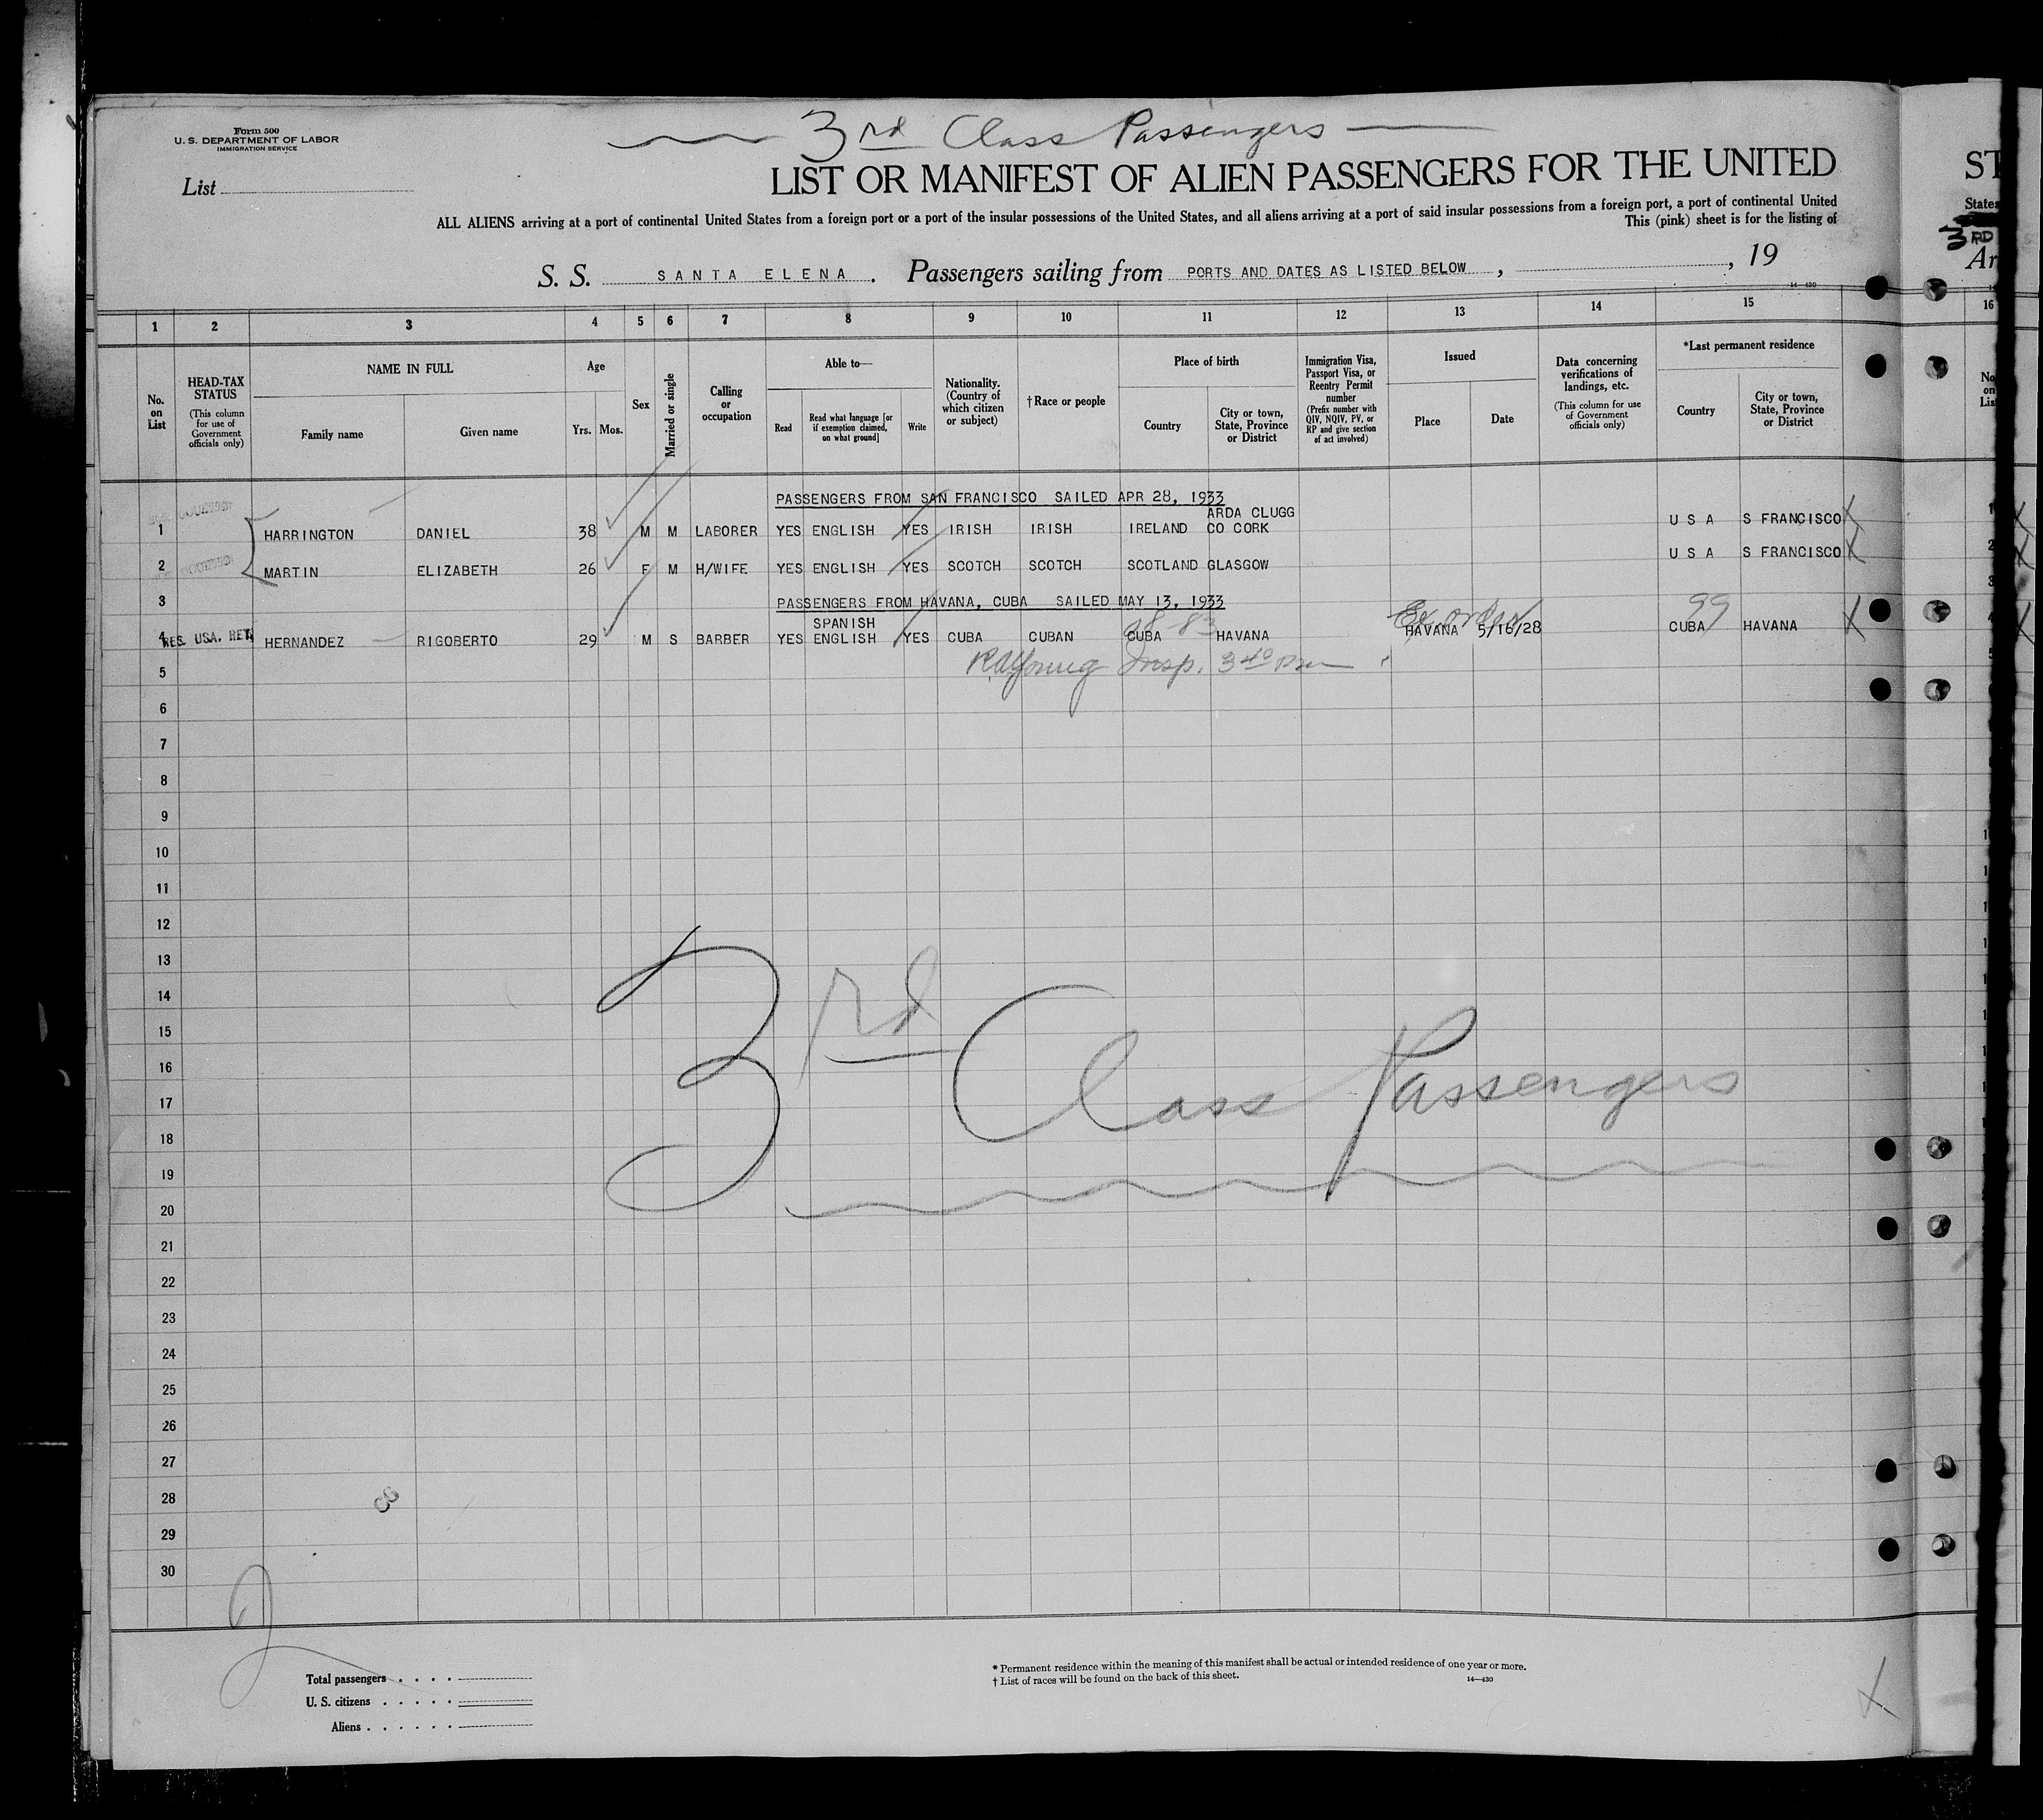 3rd Class Passengers
Form 500
U. S. DEPARTMENT OF LABOR
IMMIGRATION SERVICE
List
LIST OR MANIFEST OF ALIEN PASSENGERS FOR THE UNITED
ST
ALL ALIENS arriving at a port of continental United States from a foreign port or a port of the insular possessions of the United States, and all aliens arriving at a port of said insular possessions from a foreign port, a port of continental United
States
This (pink) sheet is for the listing of
3RD
S. S. SANTA ELENA. Passengers sailing from PORTS AND DATES AS LISTED BELOW , , 19
Ar
14—430
1 2 3 4 5 6 7 8 9 10 11 12 13 14 15 16
No. on List
HEAD-TAX STATUS
(This column for use of Government officials only)
NAME IN FULL
Family name
Given name
Age
Yrs. Mos.
Sex
Married or single
Calling or occupation
Able to—
Read
Read what language [or if exemption claimed, on what ground]
Write
Nationality. (Country of which citizen or subject)
†Race or people
Place of birth
Country
City or town, State, Province or District
Immigration Visa, Passport Visa, or Reentry Permit number
(Prefix number with QIV, NQIV, PV, or RP and give section of act involved)
Issued
Place
Date
Data concerning verifications of landings, etc.
(This column for use of Government officials only)
*Last permanent residence
Country
City or town, State, Province or District
No on Lis
PASSENGERS FROM SAN FRANCISCO SAILED APR 28, 1933
1 HARRINGTON DANIEL 38 M M LABORER YES ENGLISH YES IRISH IRISH IRELAND ARDA CLUGG CO CORK U S A S FRANCISCO
2 MARTIN ELIZABETH 26 F M H/WIFE YES ENGLISH YES SCOTCH SCOTCH SCOTLAND GLASGOW U S A S FRANCISCO
3 PASSENGERS FROM HAVANA, CUBA SAILED MAY 13, 1933
4 RES. USA. RET. HERNANDEZ RIGOBERTO 29 M S BARBER YES SPANISH ENGLISH YES CUBA CUBAN CUBA HAVANA HAVANA 5/16/28 CUBA 99 HAVANA
5 RAYoung Insp. 3 40 Pm
6
7
8
9
10
11
12
13
14
15
16
17
18
19
20
21
22
23
24
25
26
27
28
29
30
3rd Class Passengers
Total passengers
U. S. citizens
Aliens
* Permanent residence within the meaning of this manifest shall be actual or intended residence of one year or more.
† List of races will be found on the back of this sheet.
14—430